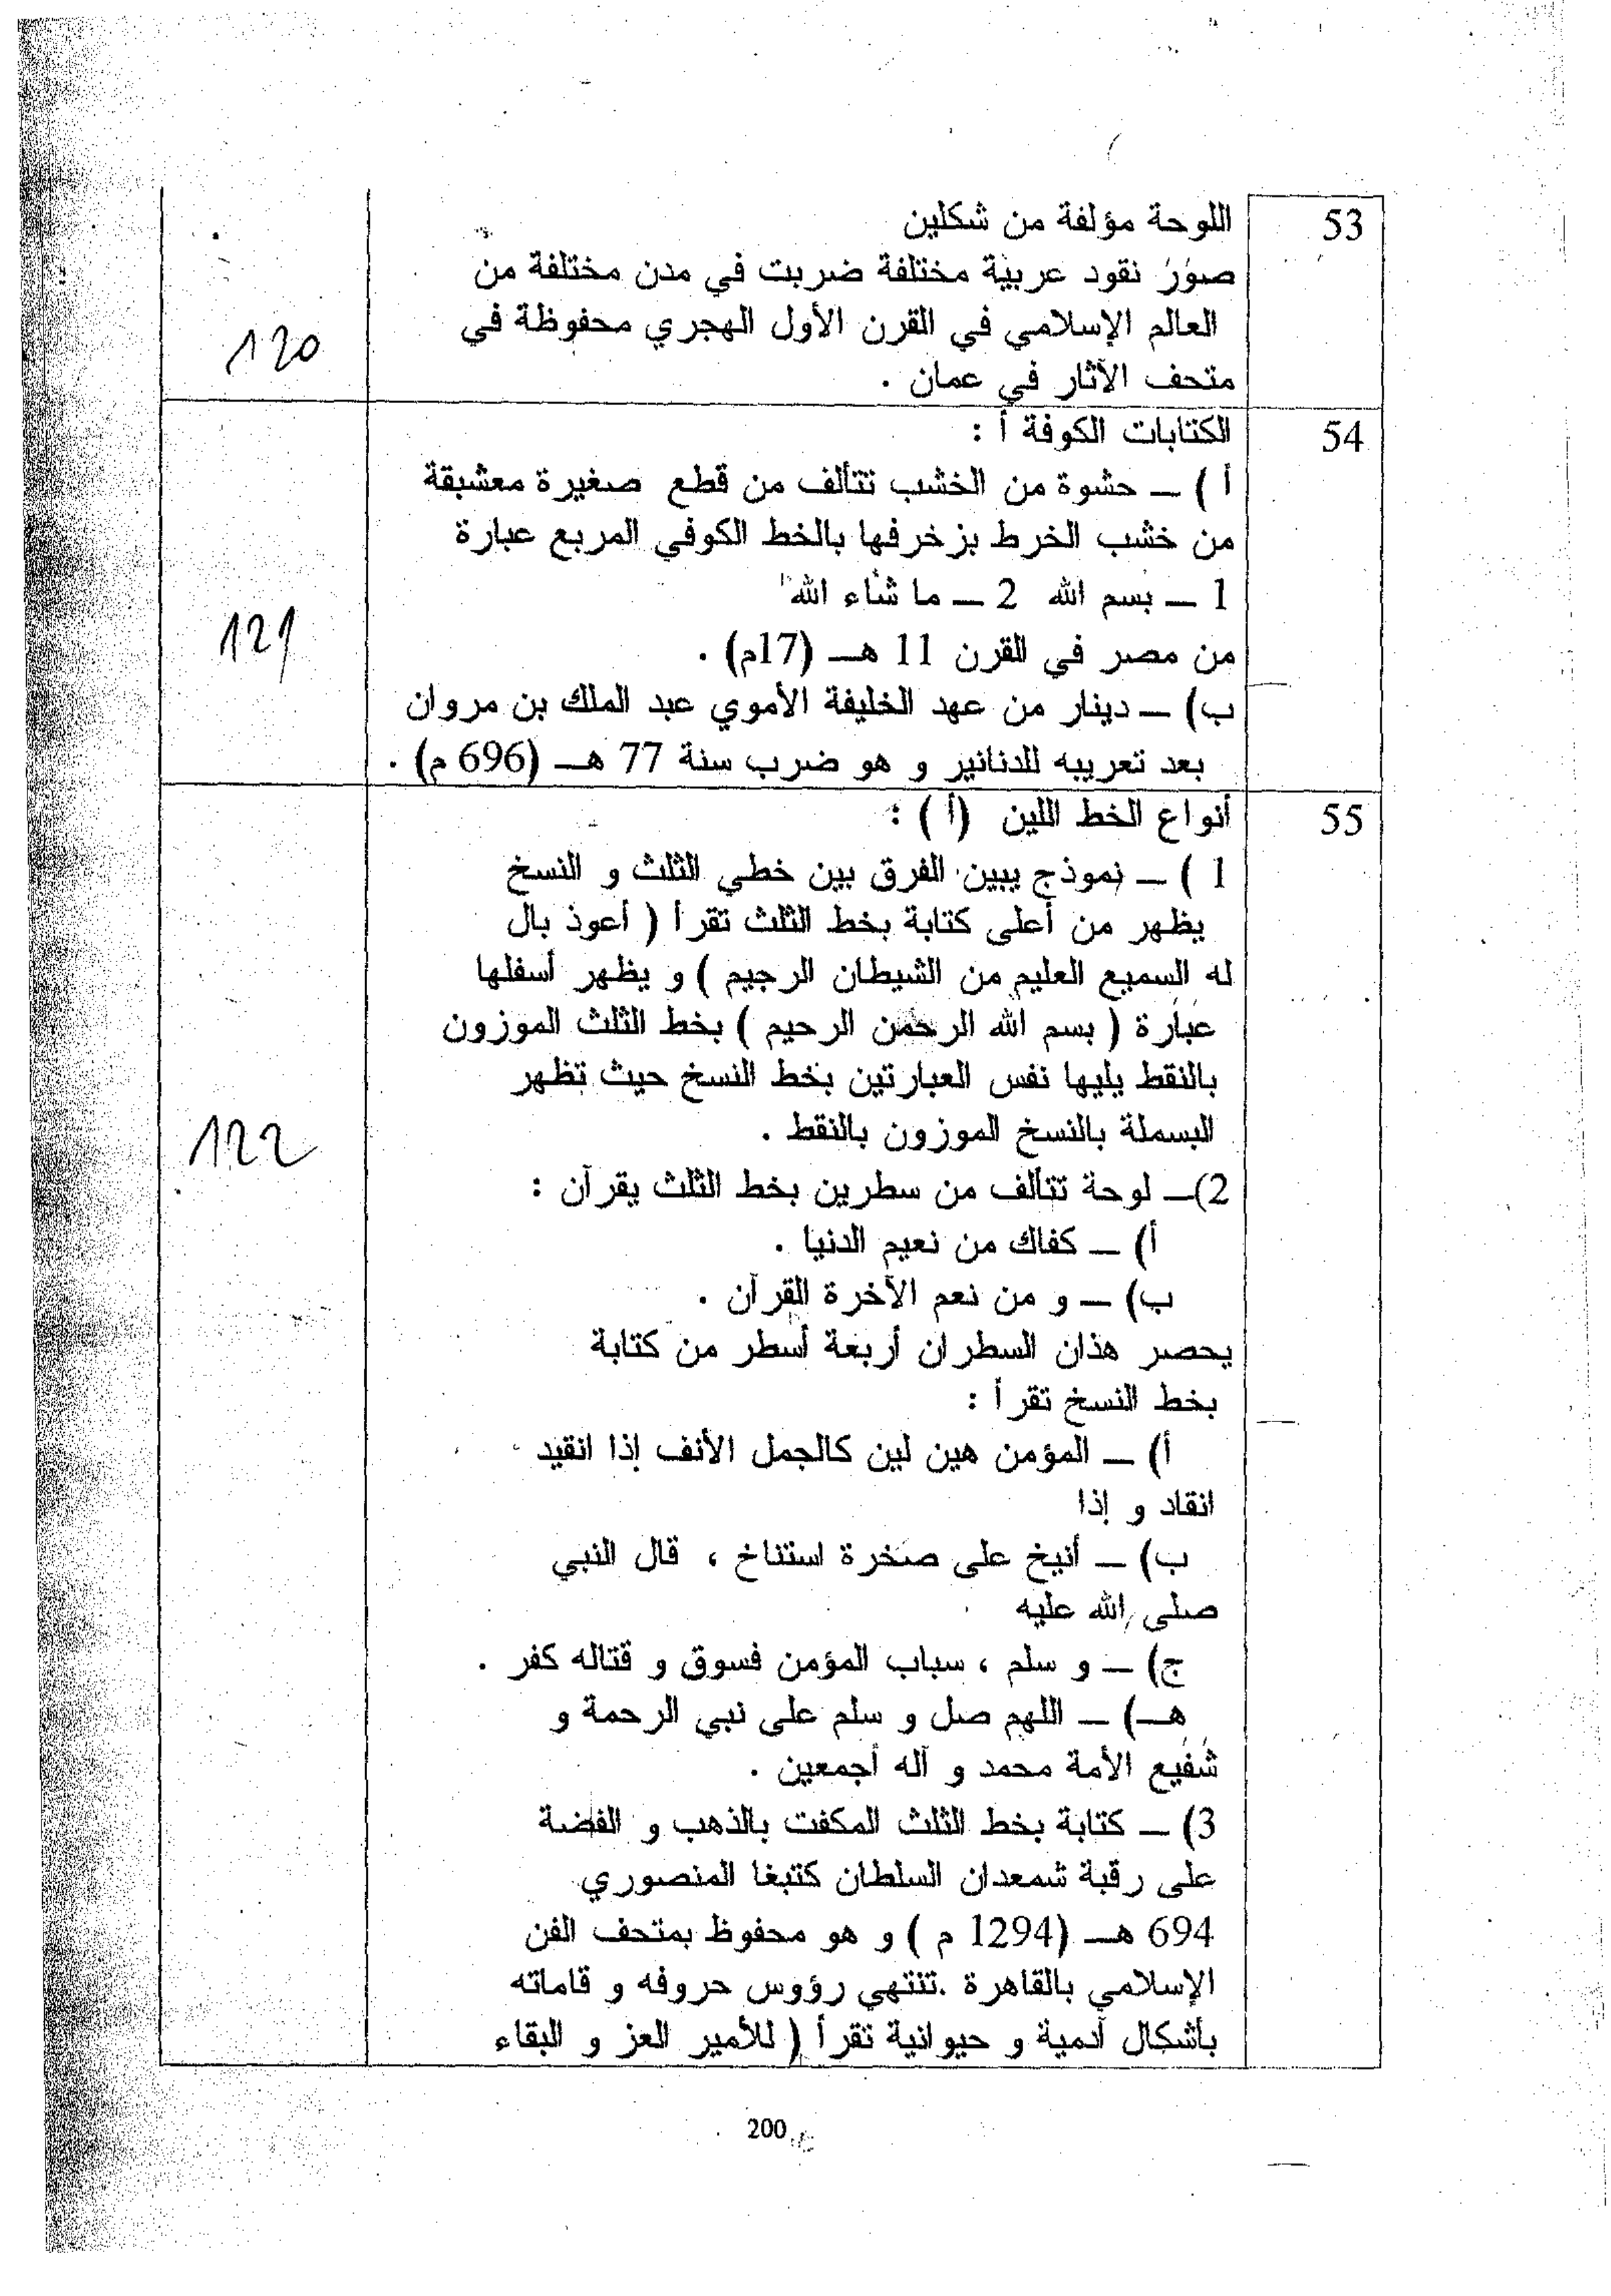 53
اللوحة مؤلفة من شكلين
صور نقود عربية مختلفة ضربت في مدن مختلفة من
العالم الإسلامي في القرن الأول الهجري محفوظة في
120
متحف الآثار في عمان .
54
الكتابات الكوفة أ :
أ ) – حشوة من الخشب تتألف من قطع صغيرة معشبقة
من خشب الخرط بزخرفها بالخط الكوفي المربع عبارة
1 – بسم الله 2 – ما شاء الله
121
من مصر في القرن 11 هـ (17م) .
ب) – دينار من عهد الخليفة الأموي عبد الملك بن مروان
بعد تعريبه للدنانير و هو ضرب سنة 77 هـ (696 م) .
55
أنواع الخط اللين (أ ) :
1 ) – نموذج يبين الفرق بين خطي الثلث و النسخ
يظهر من أعلى كتابة بخط الثلث تقرأ ( أعوذ بال
له السميع العليم من الشيطان الرجيم ) و يظهر أسفلها
عبارة ( بسم الله الرحمن الرحيم ) بخط الثلث الموزون
بالنقط يليها نفس العبارتين بخط النسخ حيث تظهر
122
البسملة بالنسخ الموزون بالنقط .
2)– لوحة تتألف من سطرين بخط الثلث يقرآن :
أ) – كفاك من نعيم الدنيا .
ب) – و من نعم الآخرة القرآن .
يحصر هذان السطران أربعة أسطر من كتابة
بخط النسخ تقرأ :
أ) – المؤمن هين لين كالجمل الأنف إذا انقيد
انقاد و إذا
ب) – أنيخ على صخرة استناخ ، قال النبي
صلى الله عليه
ج) – و سلم ، سباب المؤمن فسوق و قتاله كفر .
هـ) – اللهم صل و سلم على نبي الرحمة و
شفيع الأمة محمد و آله أجمعين .
3) – كتابة بخط الثلث المكفت بالذهب و الفضة
على رقبة شمعدان السلطان كتبغا المنصوري
694 هـ (1294 م ) و هو محفوظ بمتحف الفن
الإسلامي بالقاهرة .تنتهي رؤوس حروفه و قاماته
بأشكال آدمية و حيوانية تقرأ ( للأمير العز و البقاء
200